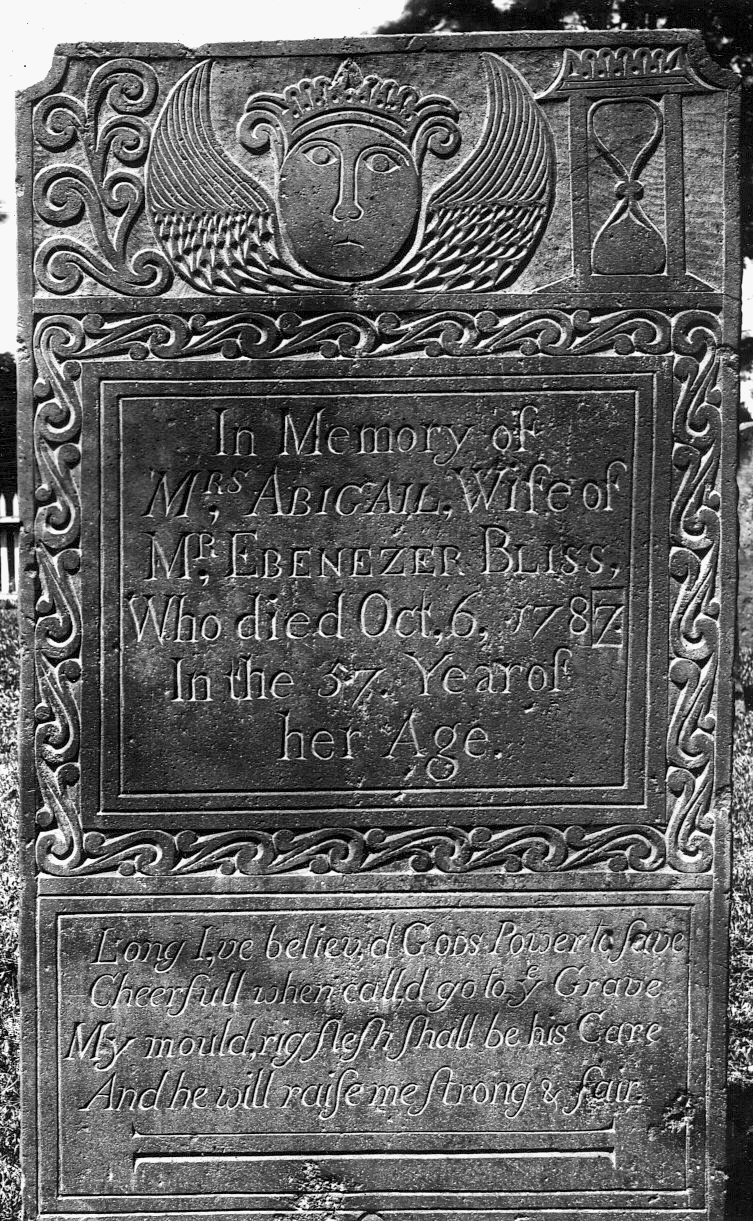 In Memory of
Mrs, ABIGAIL, Wife of
Mr, EBENEZER BLISS,
Who died Oct, 6, 1787
In the 57. Year of
her Age.
Long I,ve believ,d GODS Power to ſave
Cheerfull when call,d go to ye Grave
My mould,rig fleſh ſhall be his Care
And he will raiſe me ſtrong & fair.